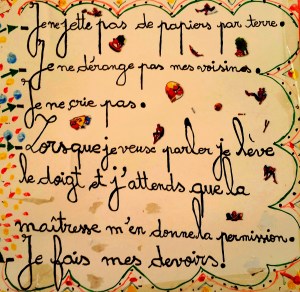 - Je ne jette pas de papiers par terre.
- Je ne dérange pas mes voisins.
- Je ne crie pas.
- Lorsque je veux parler je lève
le doigt et j'attends que la
maîtresse m'en donne la permission.
- Je fais mes devoirs!